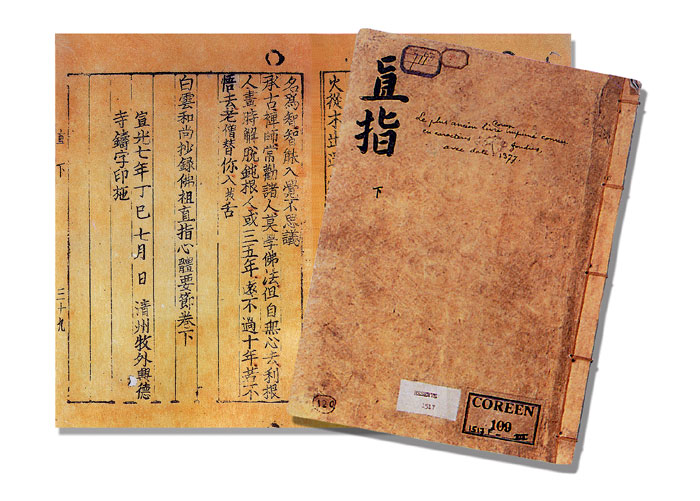 名爲智智能入覺不思議
承古禪師常勸諸人莫學佛法但自無心去利根
人晝時解脫鈍根人或三五年遠不過十年若不
悟去老僧替你入拔舌
白雲和尚抄錄佛祖直指心體要節卷下
宣光七年丁巳七月 日 淸州牧外興德
寺鑄字印施
直 下
三十九
直指
下
Le plus ancien livre imprimé connu
en caractères fondus,
avec date 1377.
1517
COREEN
109